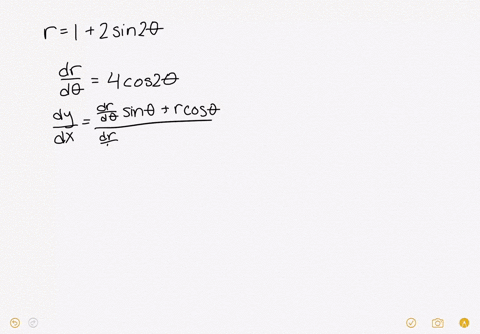 r = 1 + 2 sin2θ
dr/dθ = 4cos2θ
dy/dx = (dr/dθ sinθ + r cosθ)/(dr